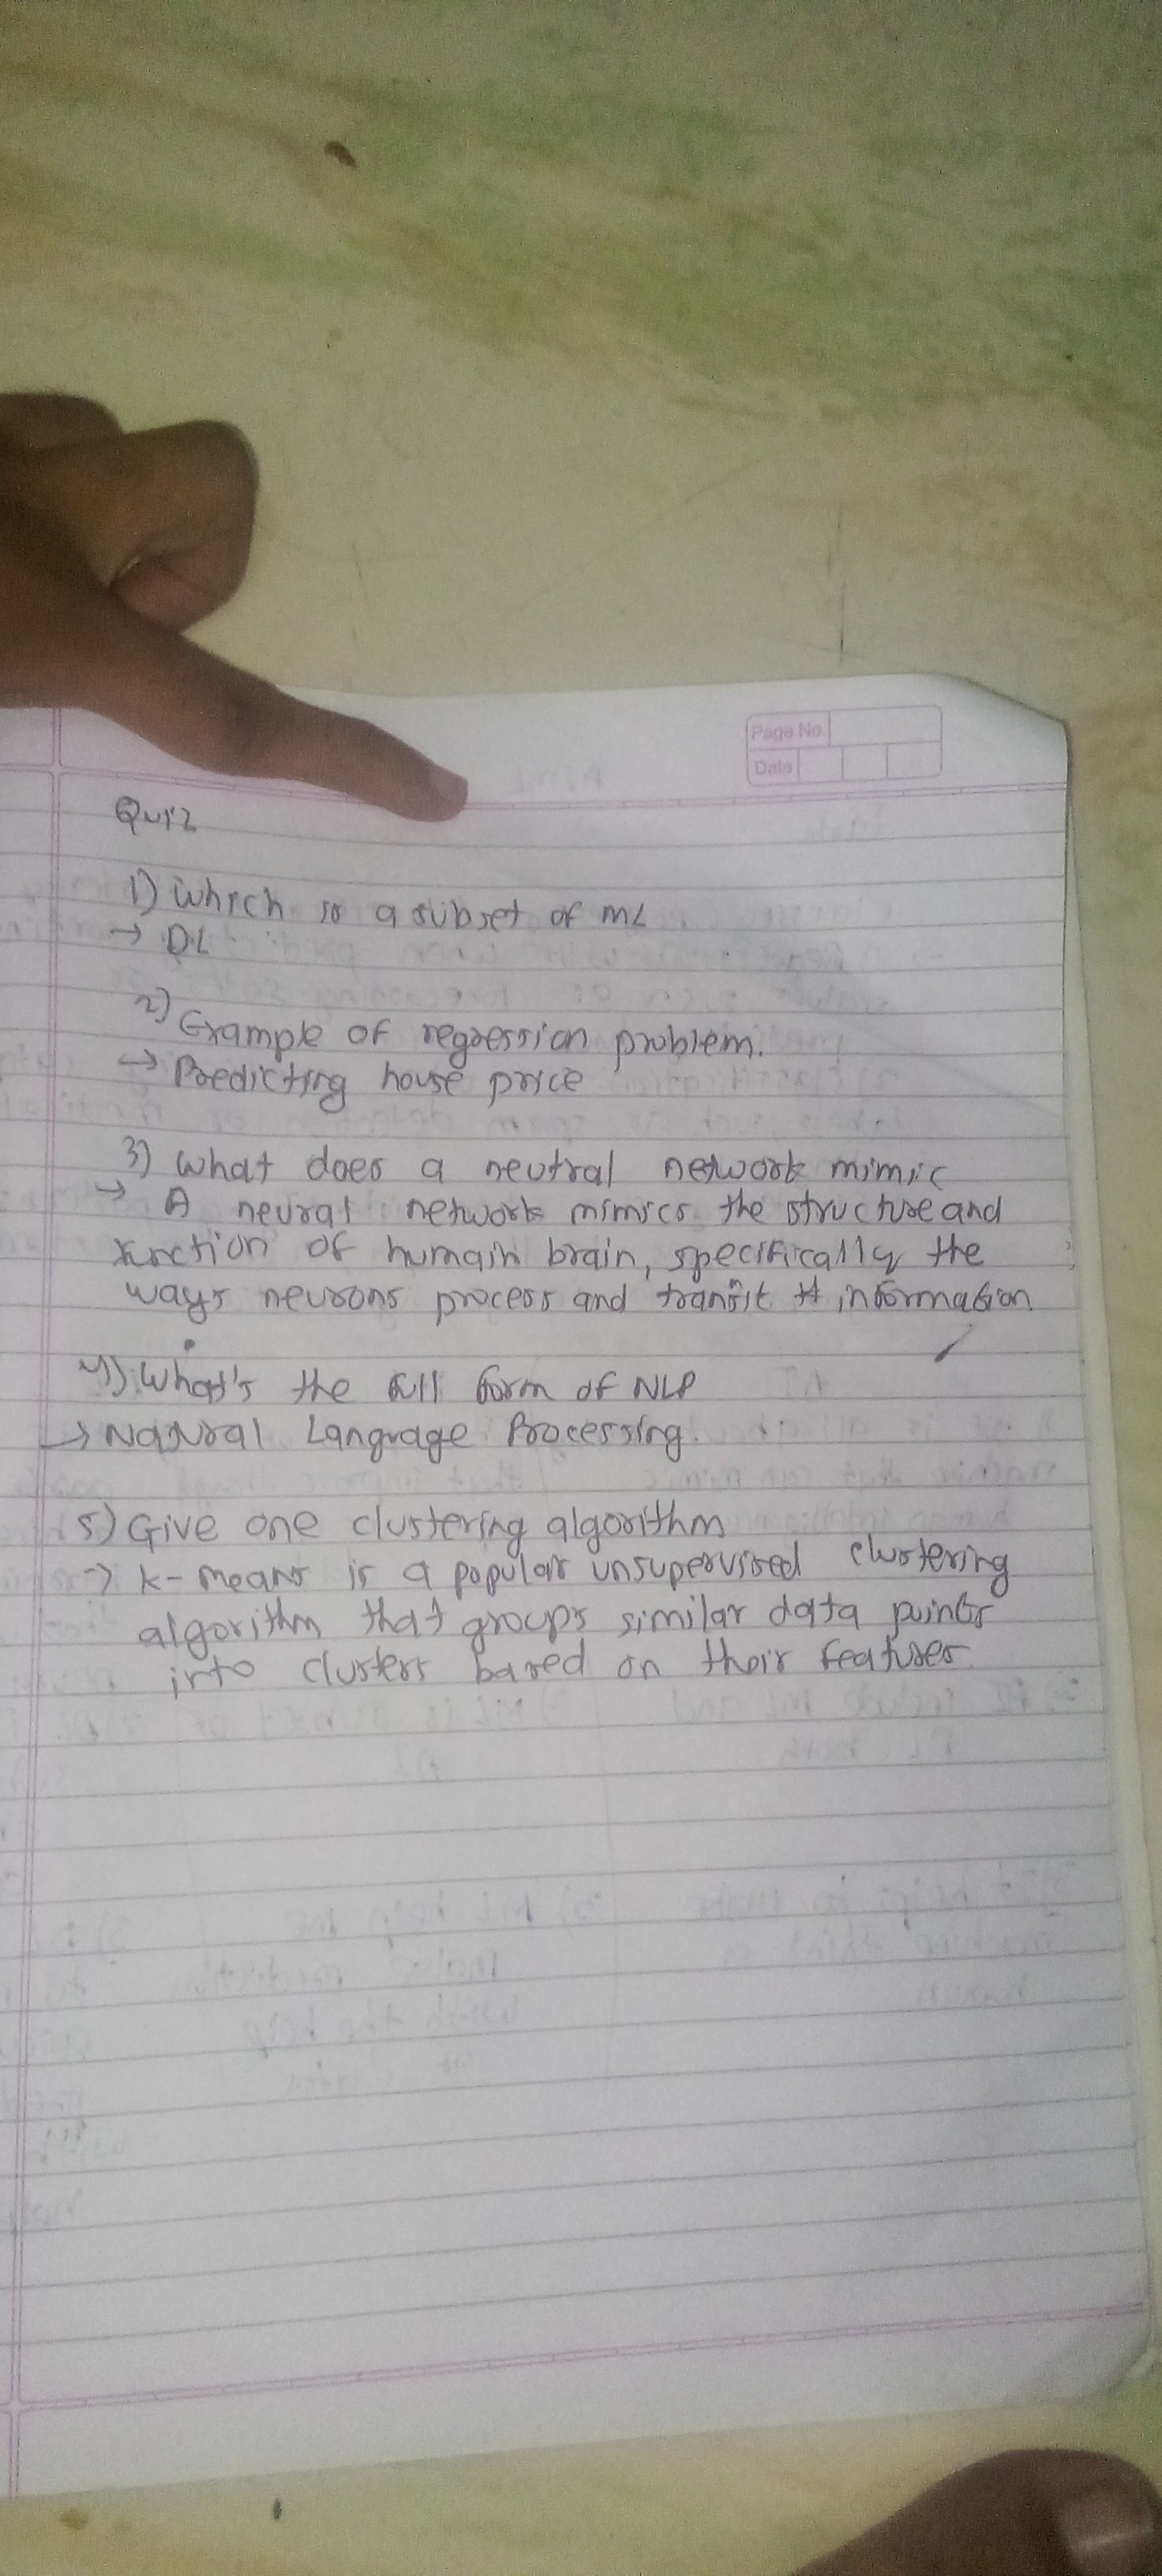 Page No.
Date
Quiz
1) Which is a subset of ML
→ DL
2) Example of regression problem.
→ Predicting house price
3) What does a neutral network mimic
→ A neural network mimics the structure and
function of human brain, specifically the
ways neurons process and transit information
4) What's the full form of NLP
→ Natural Language Processing.
5) Give one clustering algorithm
→ K-means is a popular unsupervised clustering
algorithm that groups similar data points
into clusters based on their features